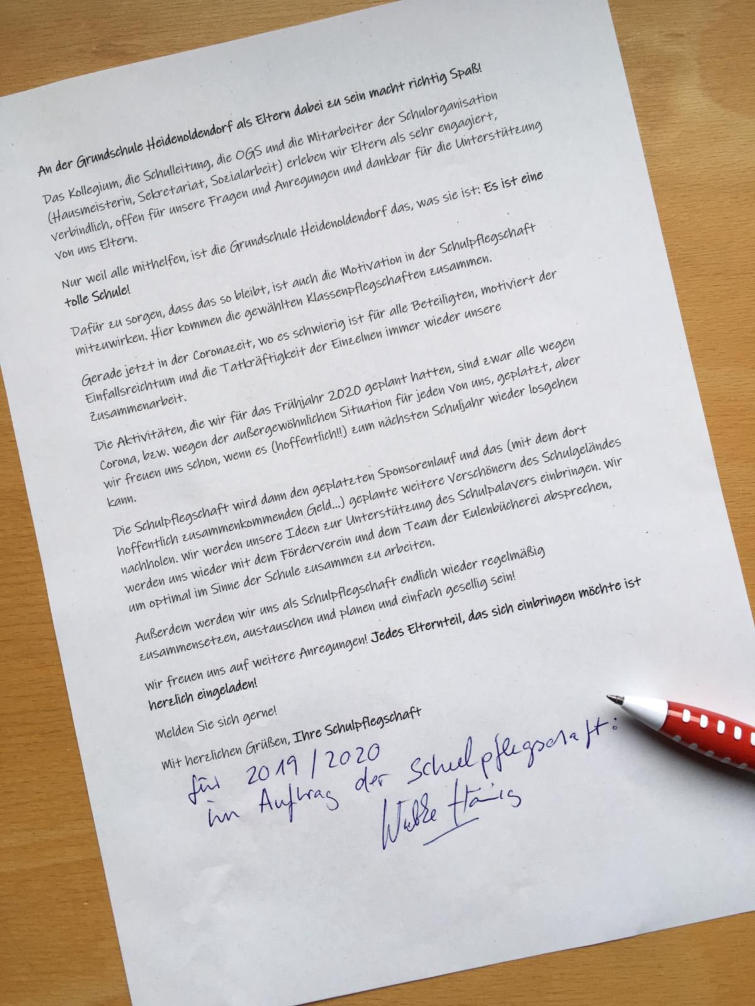 An der Grundschule Heidenoldendorf als Eltern dabei zu sein macht richtig Spaß!
Das Kollegium, die Schulleitung, die OGS und die Mitarbeiter der Schulorganisation
(Hausmeisterin, Sekretariat, Sozialarbeit) erleben wir Eltern als sehr engagiert,
verbindlich, offen für unsere Fragen und Anregungen und dankbar für die Unterstützung
von uns Eltern.
Nur weil alle mithelfen, ist die Grundschule Heidenoldendorf das, was sie ist: Es ist eine
tolle Schule!
Dafür zu sorgen, dass das so bleibt, ist auch die Motivation in der Schulpflegschaft
mitzuwirken. Hier kommen die gewählten Klassenpflegschaften zusammen.
Gerade jetzt in der Coronazeit, wo es schwierig ist für alle Beteiligten, motiviert der
Einfallsreichtum und die Tatkräftigkeit der Einzelnen immer wieder unsere
Zusammenarbeit.
Die Aktivitäten, die wir für das Frühjahr 2020 geplant hatten, sind zwar alle wegen
Corona, bzw. wegen der außergewöhnlichen Situation für jeden von uns, geplatzt, aber
wir freuen uns schon, wenn es (hoffentlich!!) zum nächsten Schuljahr wieder losgehen
kann.
Die Schulpflegschaft wird dann den geplatzten Sponsorenlauf und das (mit dem dort
hoffentlich zusammenkommenden Geld...) geplante weitere Verschönern des Schulgeländes
nachholen. Wir werden unsere Ideen zur Unterstützung des Schulpalavers einbringen. Wir
werden uns wieder mit dem Förderverein und dem Team der Eulenbücherei absprechen,
um optimal im Sinne der Schule zusammen zu arbeiten.
Außerdem werden wir uns als Schulpflegschaft endlich wieder regelmäßig
zusammensetzen, austauschen und planen und einfach gesellig sein!
Wir freuen uns auf weitere Anregungen! Jedes Elternteil, das sich einbringen möchte ist
herzlich eingeladen!
Melden Sie sich gerne!
Mit herzlichen Grüßen, Ihre Schulpflegschaft
für 2019/2020
im Auftrag der Schulpflegschaft: